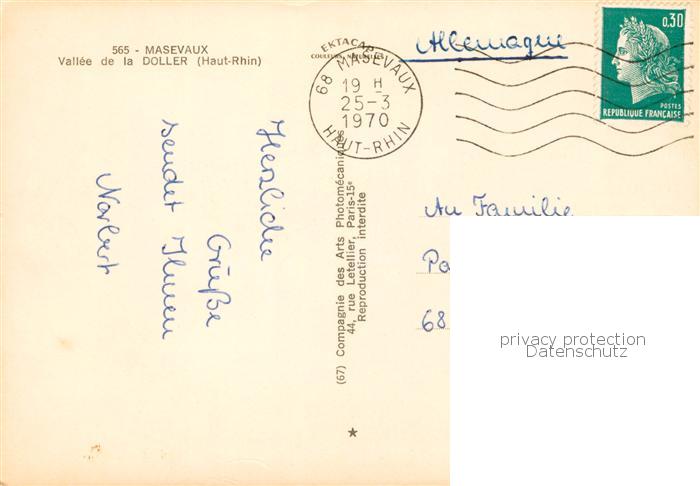 565 - MASEVAUX
Vallée de la DOLLER (Haut-Rhin)
EKTACAP
COULEURS NATURELLES
Allemagne
68 MASEVAUX
19 H
25-3
1970
HAUT-RHIN
0,30
POSTES
REPUBLIQUE FRANÇAISE
Herzliche
Grüße
sendet Ihnen
Norbert
(67) Compagnie des Arts Photomécaniques
44, rue Letellier, Paris-15e
Reproduction interdite
An Familie
Pa
68
privacy protection
Datenschutz